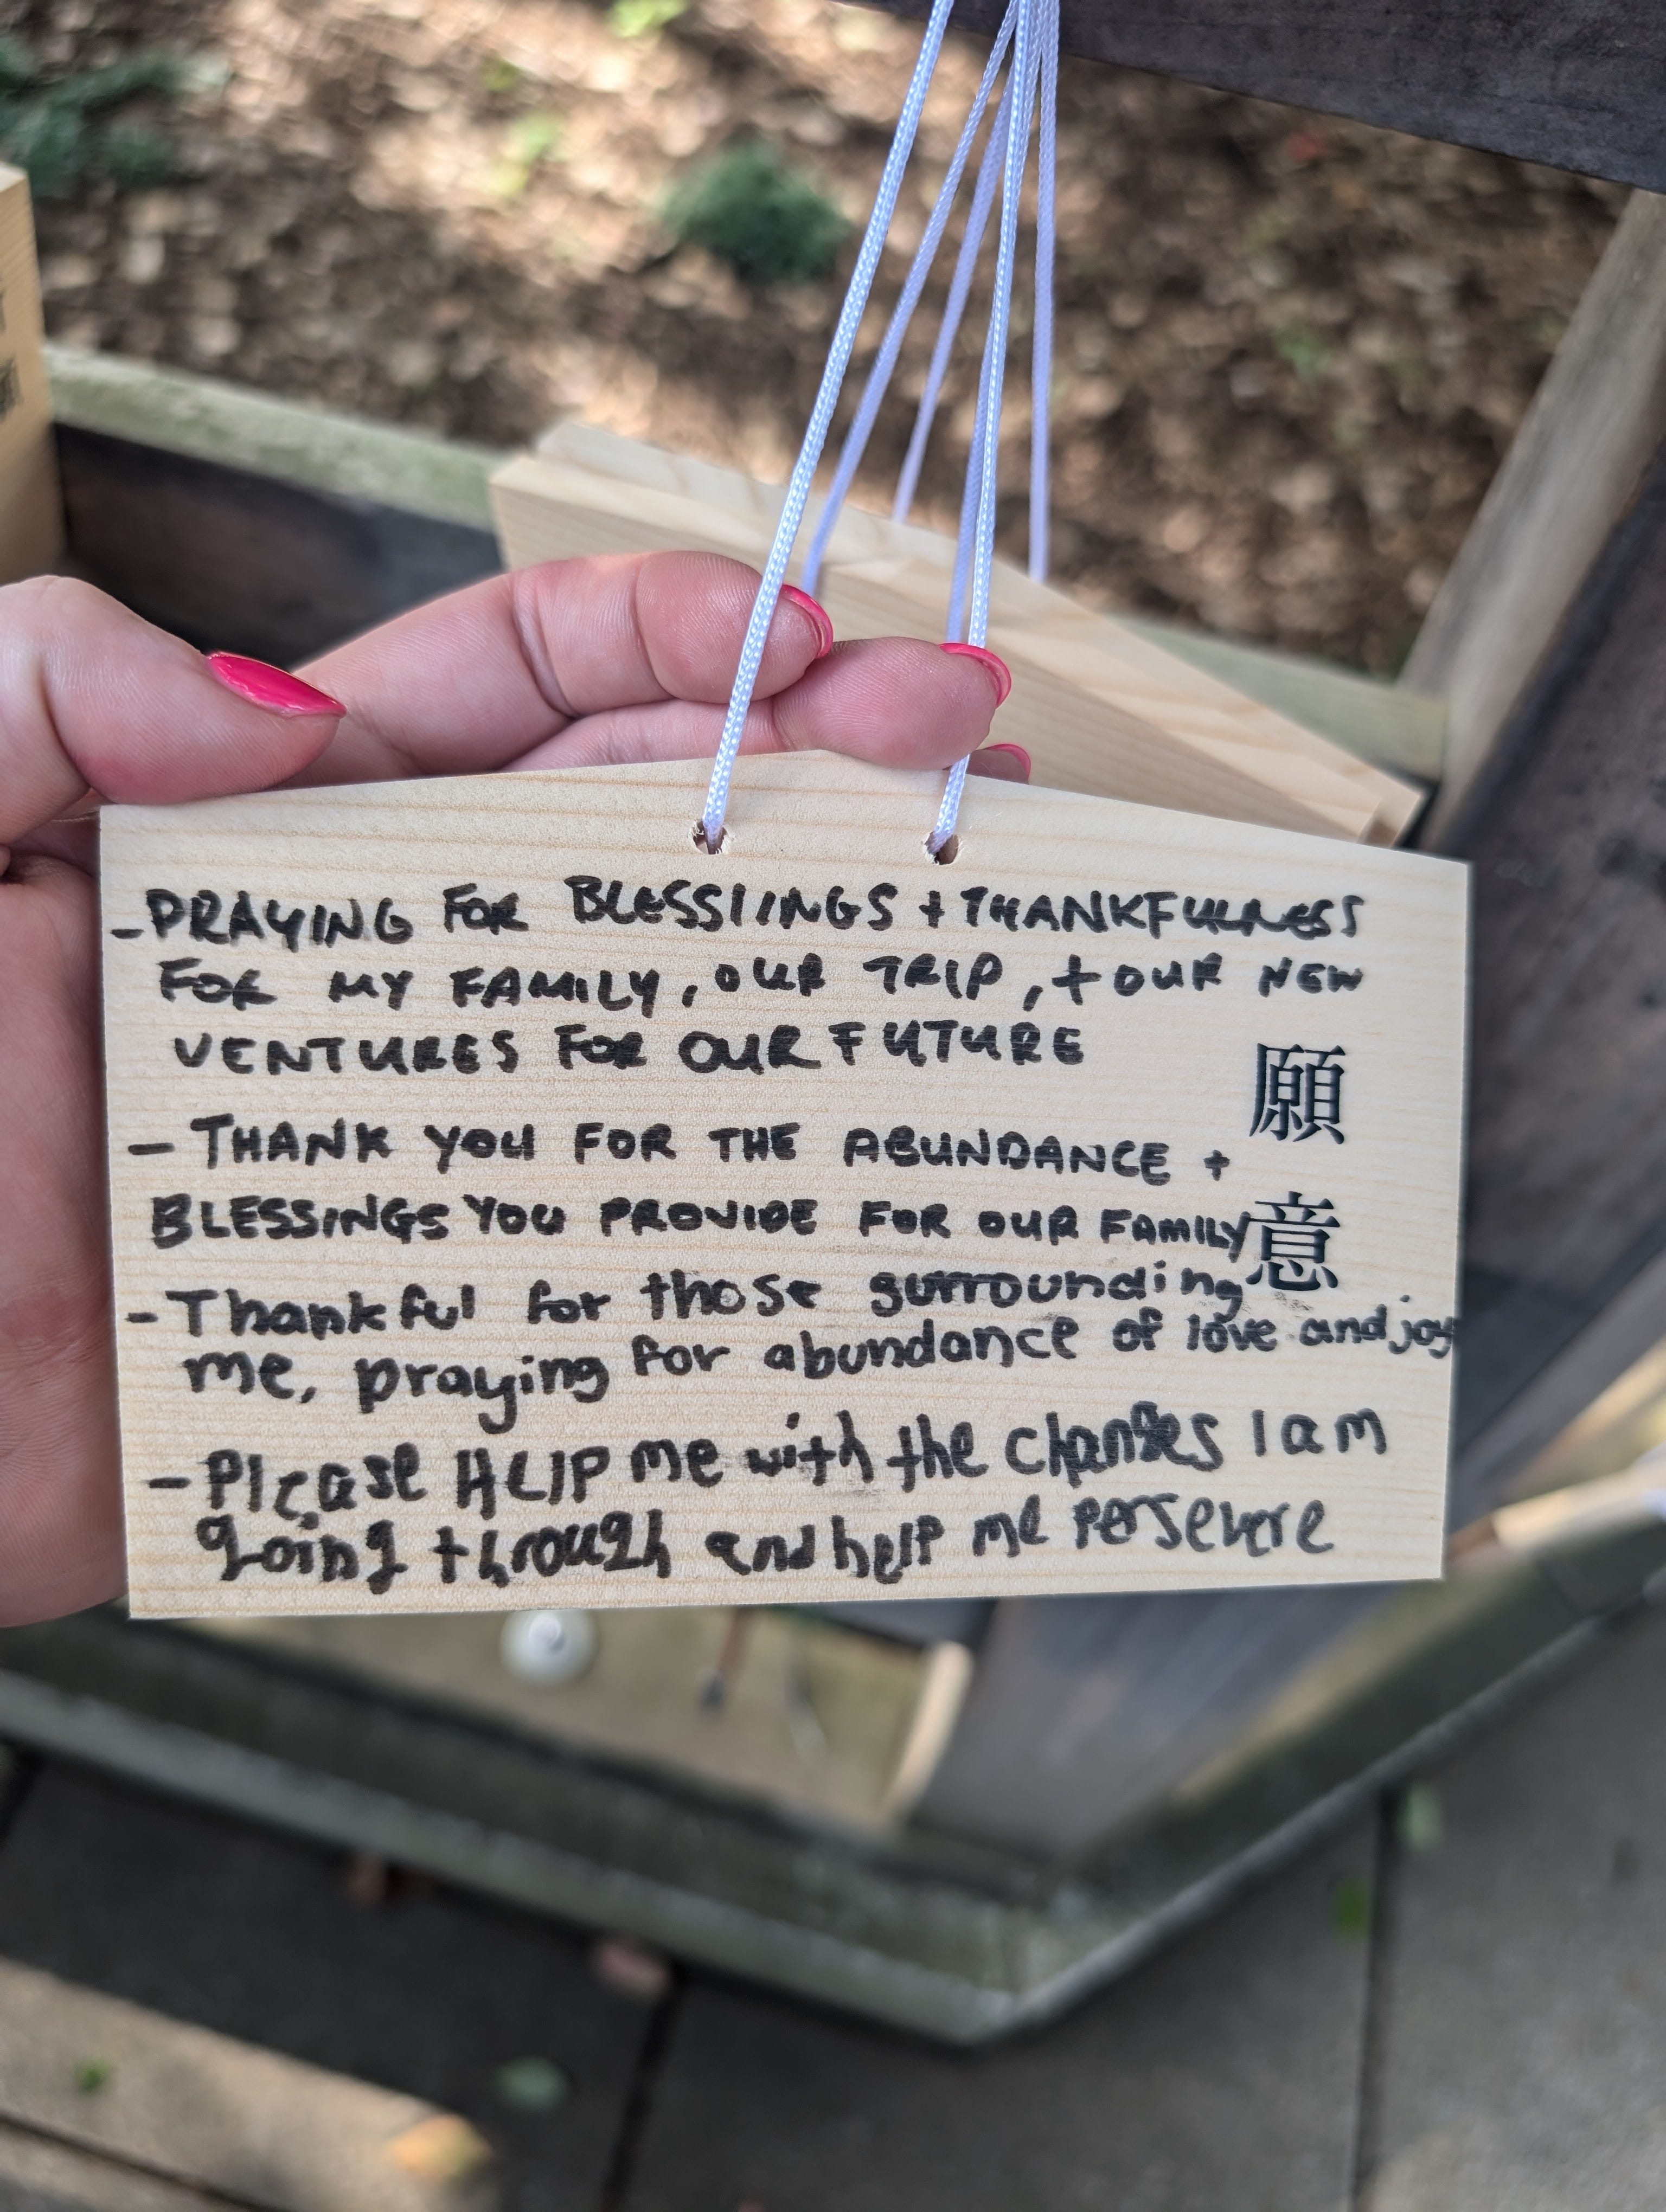 - PRAYING FOR BLESSIINGS + THANKFULNESS
FOR MY FAMILY, OUR TRIP, + OUR NEW
VENTURES FOR OUR FUTURE
- THANK YOU FOR THE ABUNDANCE +
BLESSINGS YOU PROVIDE FOR OUR FAMILY
- Thankful for those surrounding
me, praying for abundance of love and joy
- Please HELP me with the changes I am
going through and help me persevere
願意